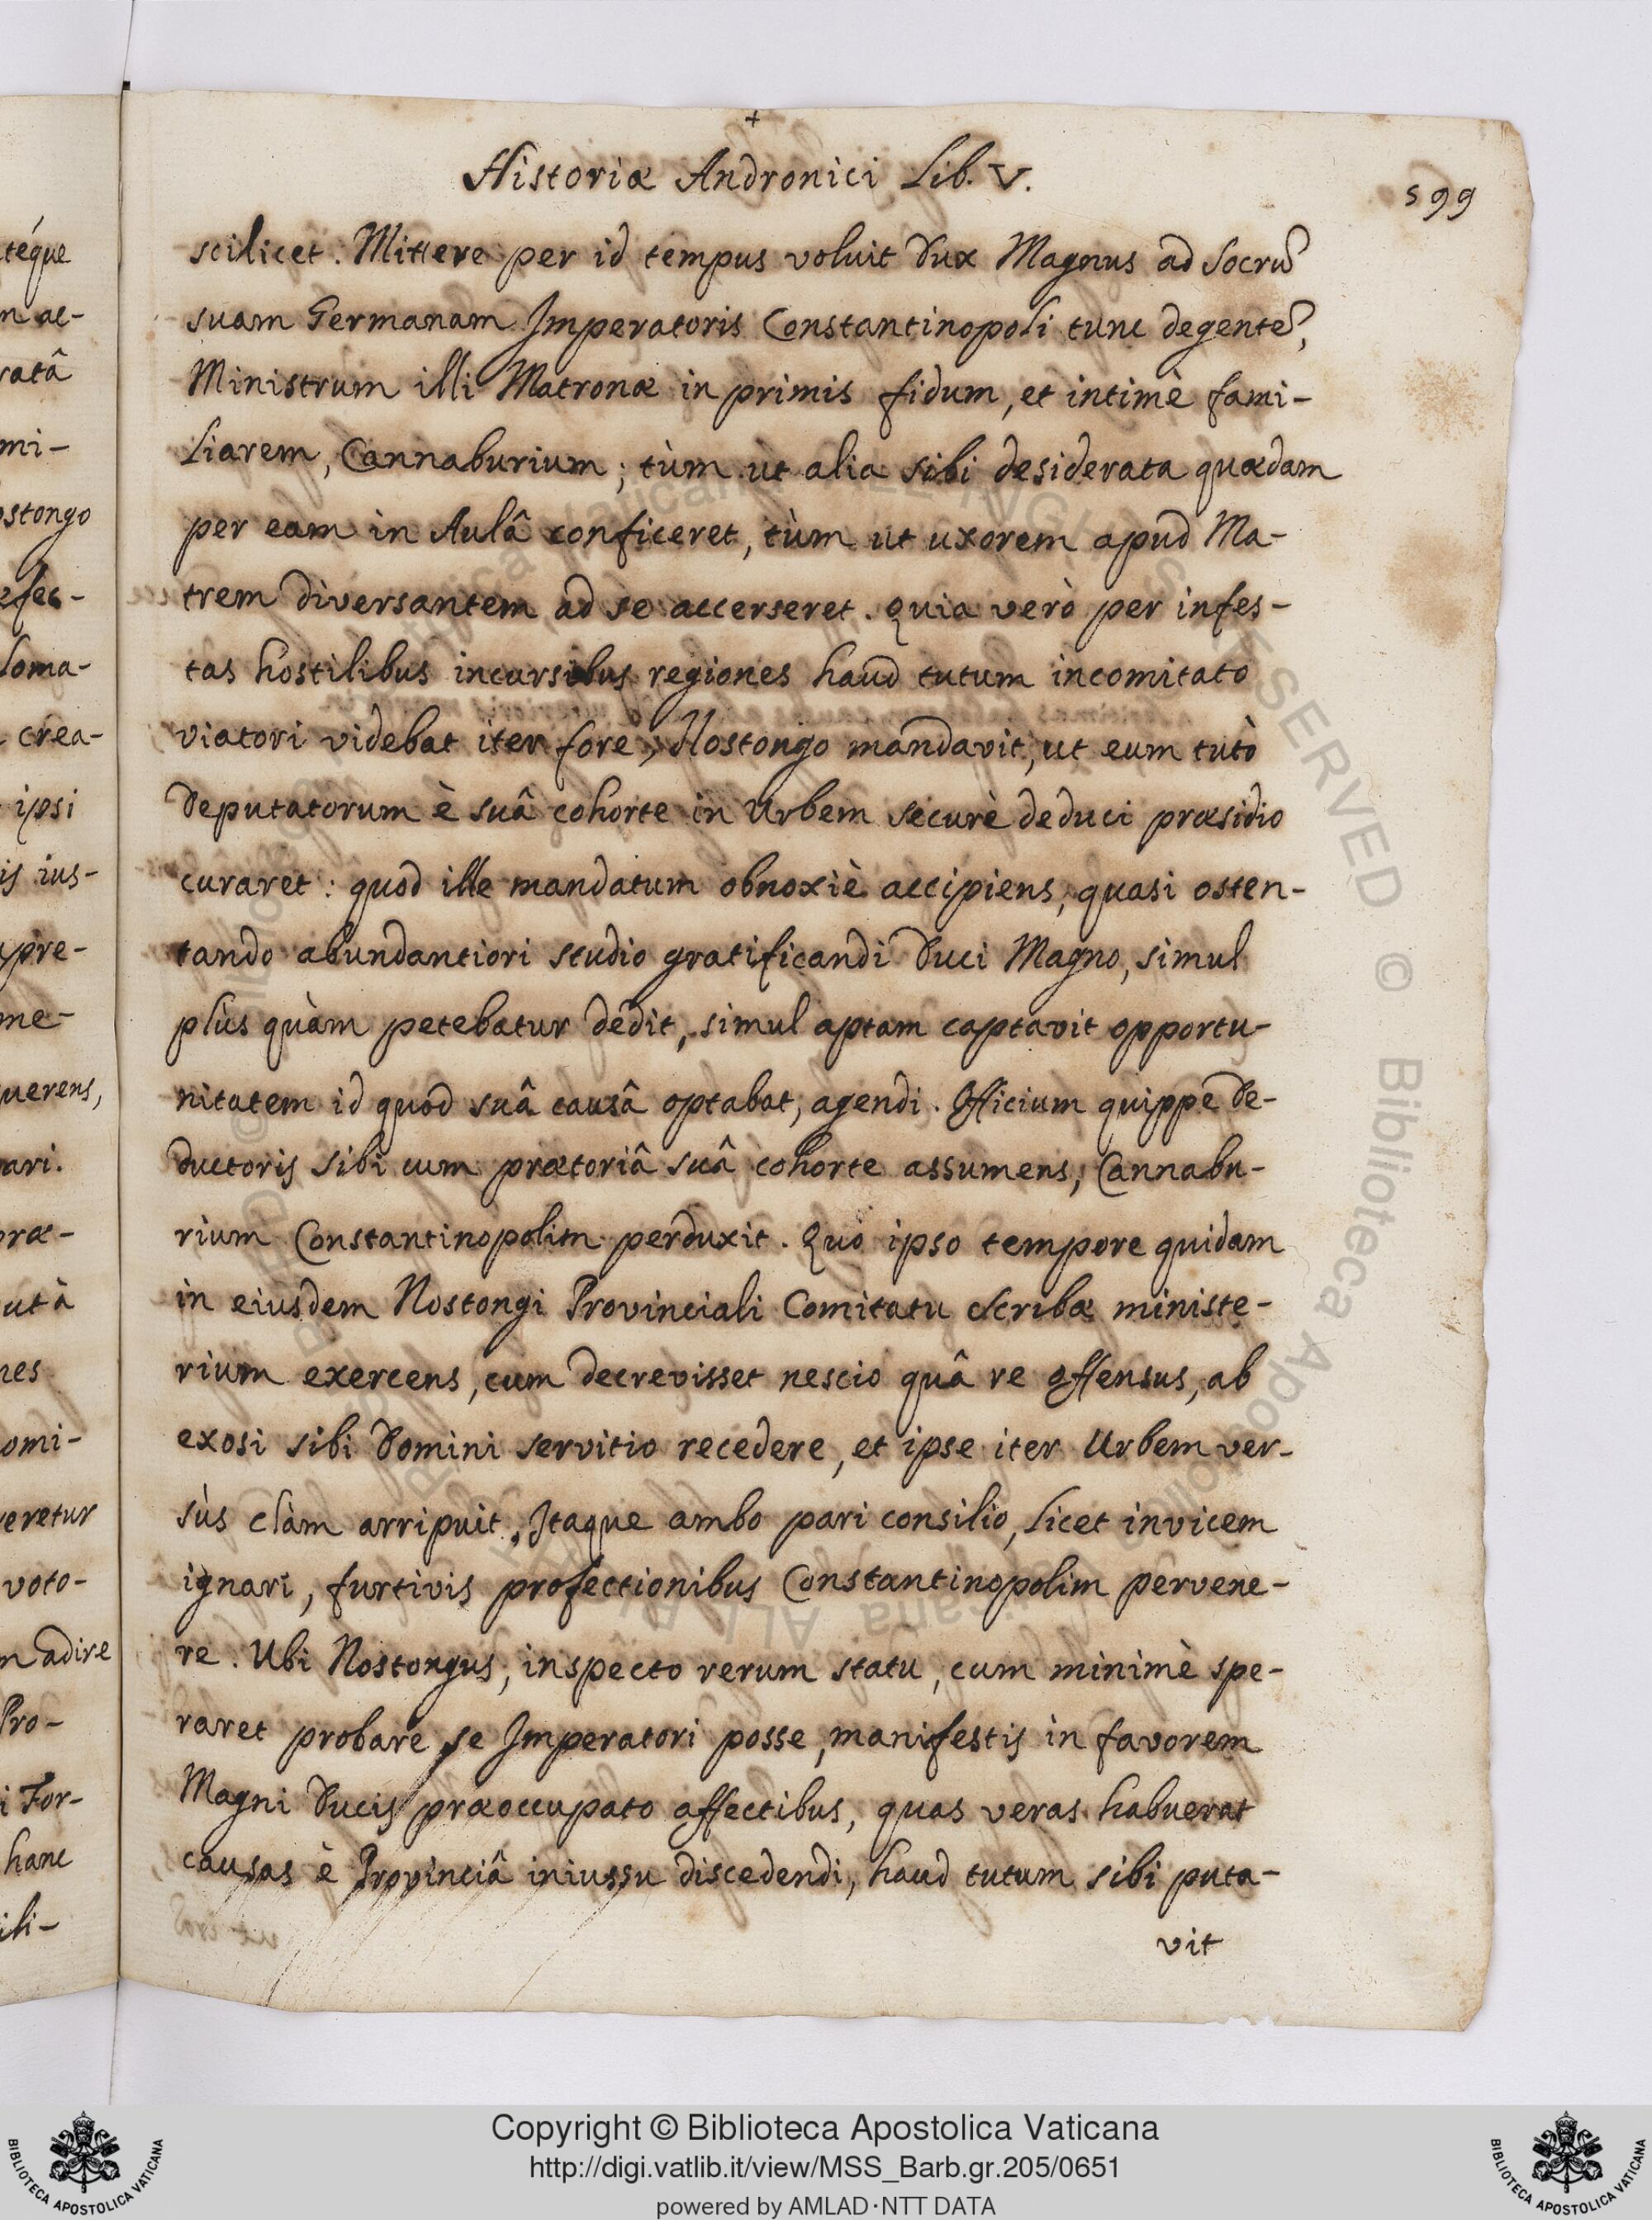 +
Historiæ Andronici Lib. V.
599
scilicet. Mittere per id tempus voluit Dux Magnus ad Socrũ
suam Germanam Imperatoris Constantinopoli tunc degentẽ,
Ministrum illi Matronæ in primis fidum, et intimè fami-
liarem, Cannaburium; tùm ut alia sibi desiderata quædam
per eam in Aulâ conficeret, tùm ut uxorem apud Ma-
trem diversantem ad se accerseret. Quia verò per infes-
tas hostilibus incursibus regiones haud tutum incomitato
viatori videbat iter fore, Nostongo mandavit, ut eum tutò
Deputatorum è suâ cohorte in Urbem securè deduci præsidio
curaret: quod ille mandatum obnoxiè accipiens, quasi osten-
tando abundantiori studio gratificandi Duci Magno, simul
plùs quàm petebatur dedit, simul aptam captavit opportu-
nitatem id quod suâ causâ optabat, agendi. Officium quippe de-
ductoris sibi cum prætoriâ suâ cohorte assumens, Cannabu-
rium Constantinopolim perduxit. Quò ipso tempore quidam
in eiusdem Nostongi Provinciali Comitatu Scribæ ministe-
rium exercens, cum decrevisset nescio quâ re offensus, ab
exosi sibi Domini servitio recedere, et ipse iter Urbem ver-
sùs clàm arripuit. Itaque ambo pari consilio, licet invicem
ignari, furtivis profectionibus Constantinopolim pervene-
re. Ubi Nostongus, inspecto rerum statu, cum minimè spe-
raret probare se Imperatori posse, manifestis in favorem
Magni Ducis præoccupato affectibus, quas veras habuerat
causas è Provinciâ iniussu discedendi, haud tutum sibi puta-
vit
téque
n ac-
ratâ
mi-
ostongo
efec-
loma-
crea-
ipsi
is ius-
pre-
me-
uerens,
pari.
præ-
utà
nes
omi-
veretur
voto-
m adire
Pro-
i For-
hanc
ili-
Copyright © Biblioteca Apostolica Vaticana
http://digi.vatlib.it/view/MSS_Barb.gr.205/0651
powered by AMLAD·NTT DATA
BIBLIOTECA APOSTOLICA VATICANA
BIBLIOTECA APOSTOLICA VATICANA